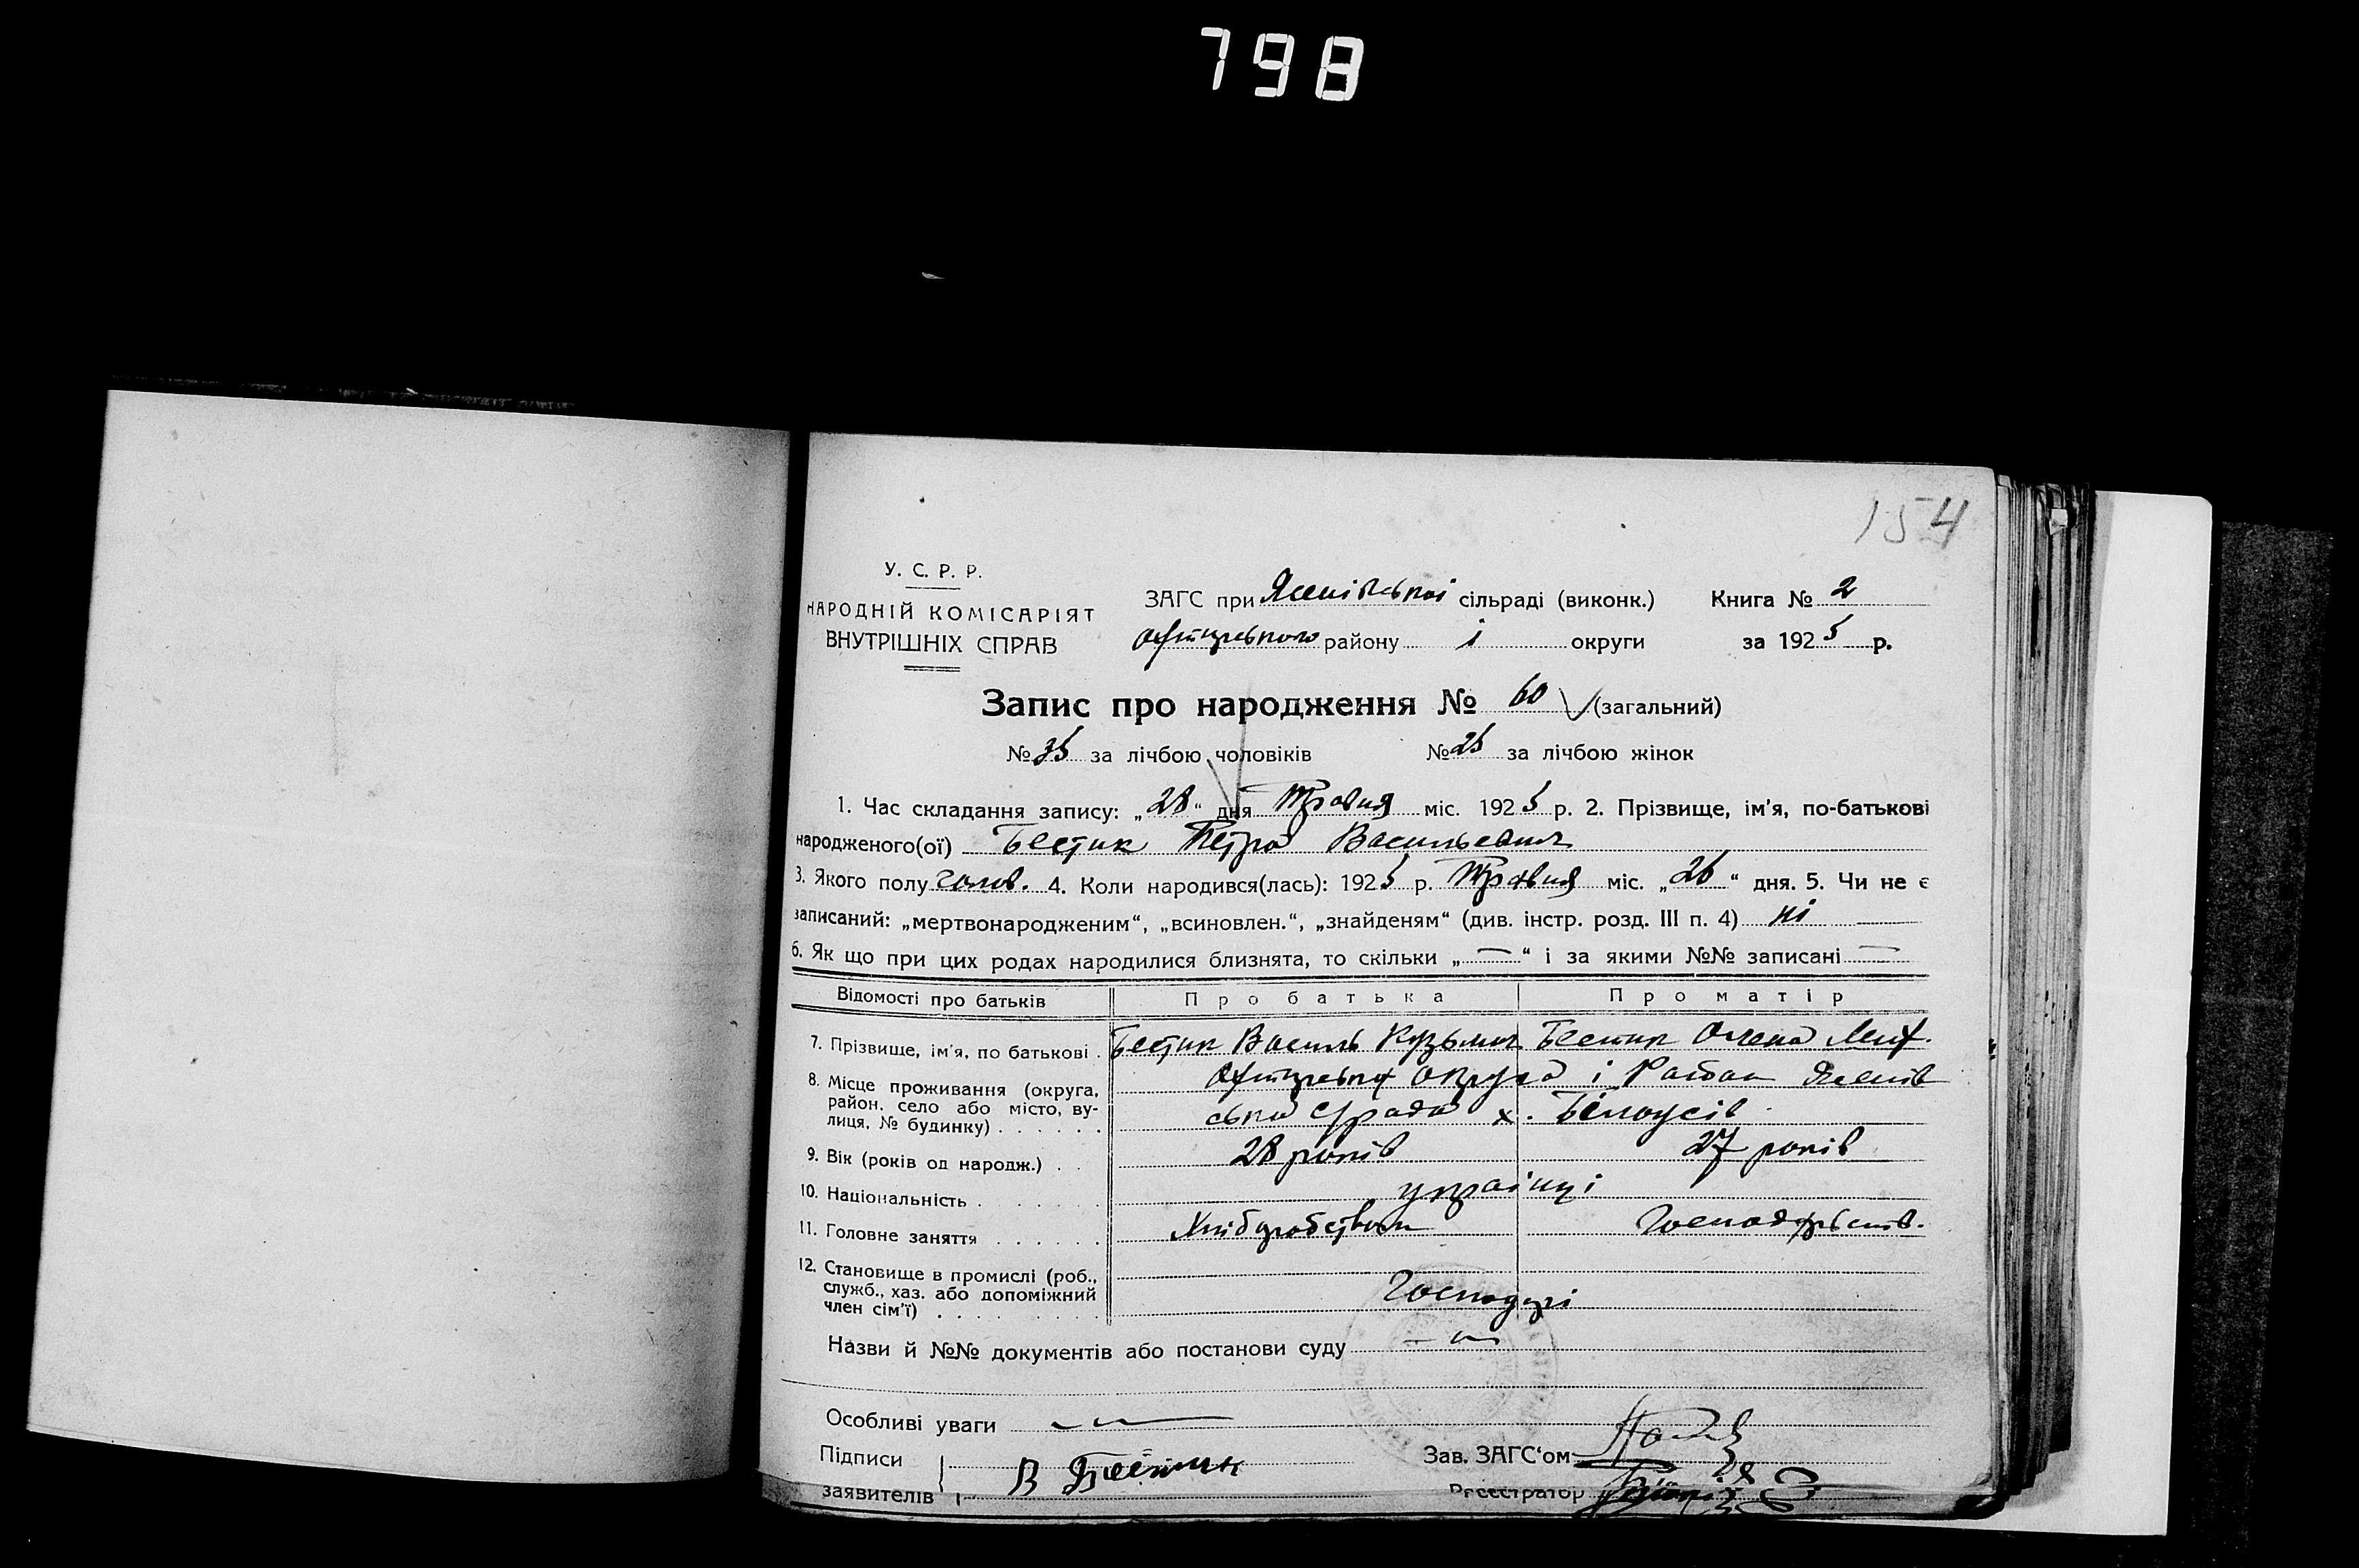 798
154
У. С. Р. Р.
НАРОДНІЙ КОМІСАРІЯТ
ВНУТРІШНІХ СПРАВ
ЗАГС при Ясенівської сільраді (виконк.) Книга № 2
Охтирського району і округи за 1925 р.
Запис про народження № 60 (загальний)
№ 35 за лічбою чоловіків № 25 за лічбою жінок
1. Час складання запису: „28“ дня Травня міс. 1925 р. 2. Прізвище, ім'я, по-батькові
народженого(ої) Бестик Петро Васильевич
3. Якого полу чолов. 4. Коли народився(лась): 1925 р. Травня міс. „26“ дня. 5. Чи не є
записаний: „мертвонародженим“, „всиновлен.“, „знайденям“ (див. інстр. розд. III п. 4) ні
6. Як що при цих родах народилися близнята, то скільки „—“ і за якими №№ записані —
Відомості про батьків Про батька Про матір
7. Прізвище, ім'я, по батькові . Бестик Василь Кузьмич Бестик Олена Мих.
8. Місце проживання (округа, район, село або місто, вулиця, № будинку) . . . . . . Охтирськ округа і Район Ясенів
ська С/рада х. Білоусів
9. Вік (років од народж.) . . 28 років 27 років
10. Національність . . . . . . українці
11. Головне заняття . . . . . . Хліборобством Господарьств.
12. Становище в промислі (роб., служб., хаз. або допоміжний член сім'ї) . . . . . . Господарі
Назви й №№ документів або постанови суду —
Особливі уваги —
Підписи заявителів В Бестик
Зав. ЗАГС'ом
Реєстратор